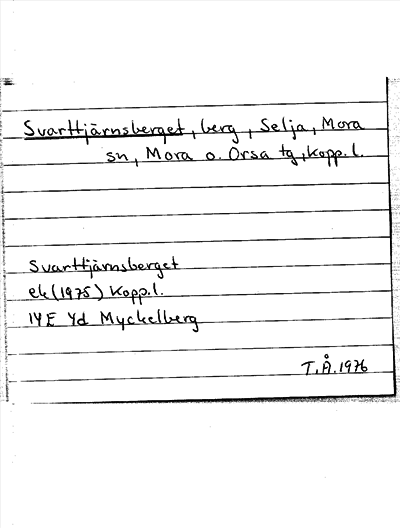 Svarttjärnsberget, berg, Selja, Mora
sn, Mora o. Orsa tg, Kopp.l.
Svarttjärnsberget
ek (1975) Kopp.l.
14E 4d Myckelberg
T.Å. 1976